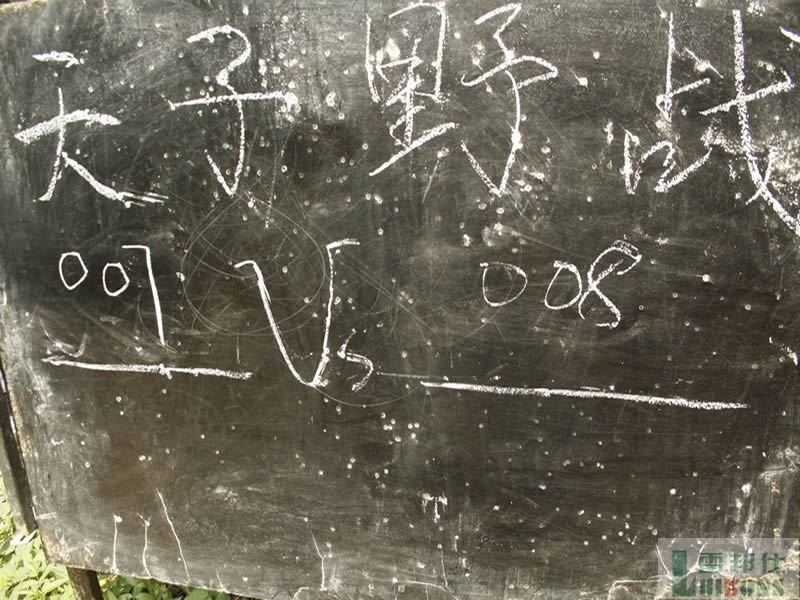 天子野战
007 Vs 008
雷邦仕